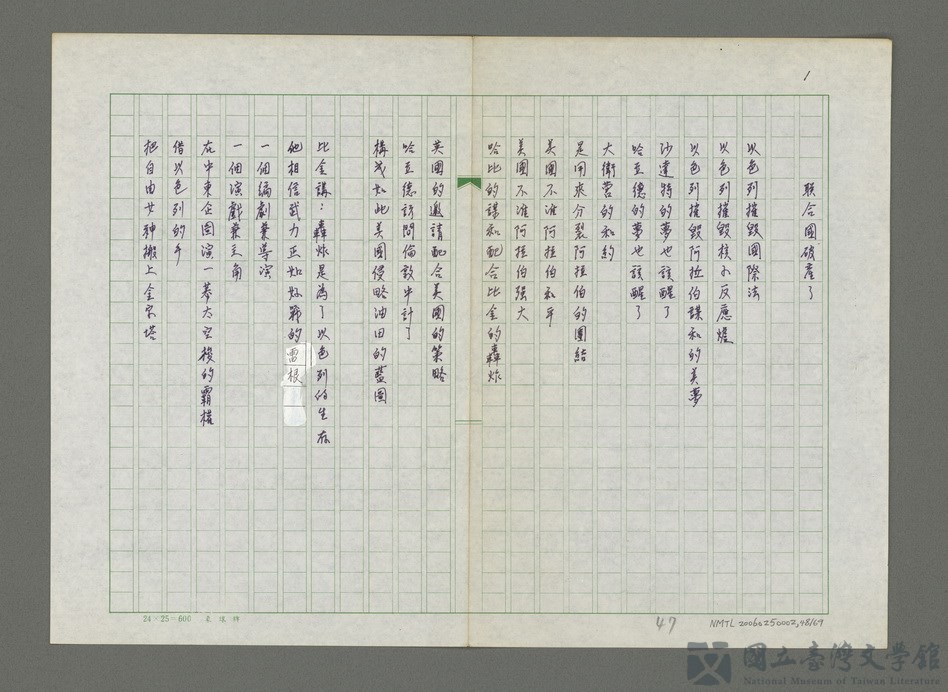 1
聯合國破產了
以色列摧毀國際法
以色列摧毀核小反應爐
以色列摧毀阿拉伯謀和的美夢
沙達特的夢也該醒了
哈立德的夢也該醒了
大衛營的和約
是用來分裂阿拉伯的團結
美國不准阿拉伯和平
美國不准阿拉伯強大
哈比的謀和配合比金的轟炸
英國的邀請配合美國的策略
哈立德訪問倫敦中計了
構成如此美國侵略油田的藍圖
比金講：轟炸是為了以色列的生存
他相信武力正如好戰的雷根
一個編劇兼導演
一個演戲兼主角
在中東企圖演一幕太空梭的霸權
借以色列的手
把自由女神搬上金字塔
24×25=600
47
NMTL 20060250002,48/69
國立臺灣文學館
National Museum of Taiwan Literature